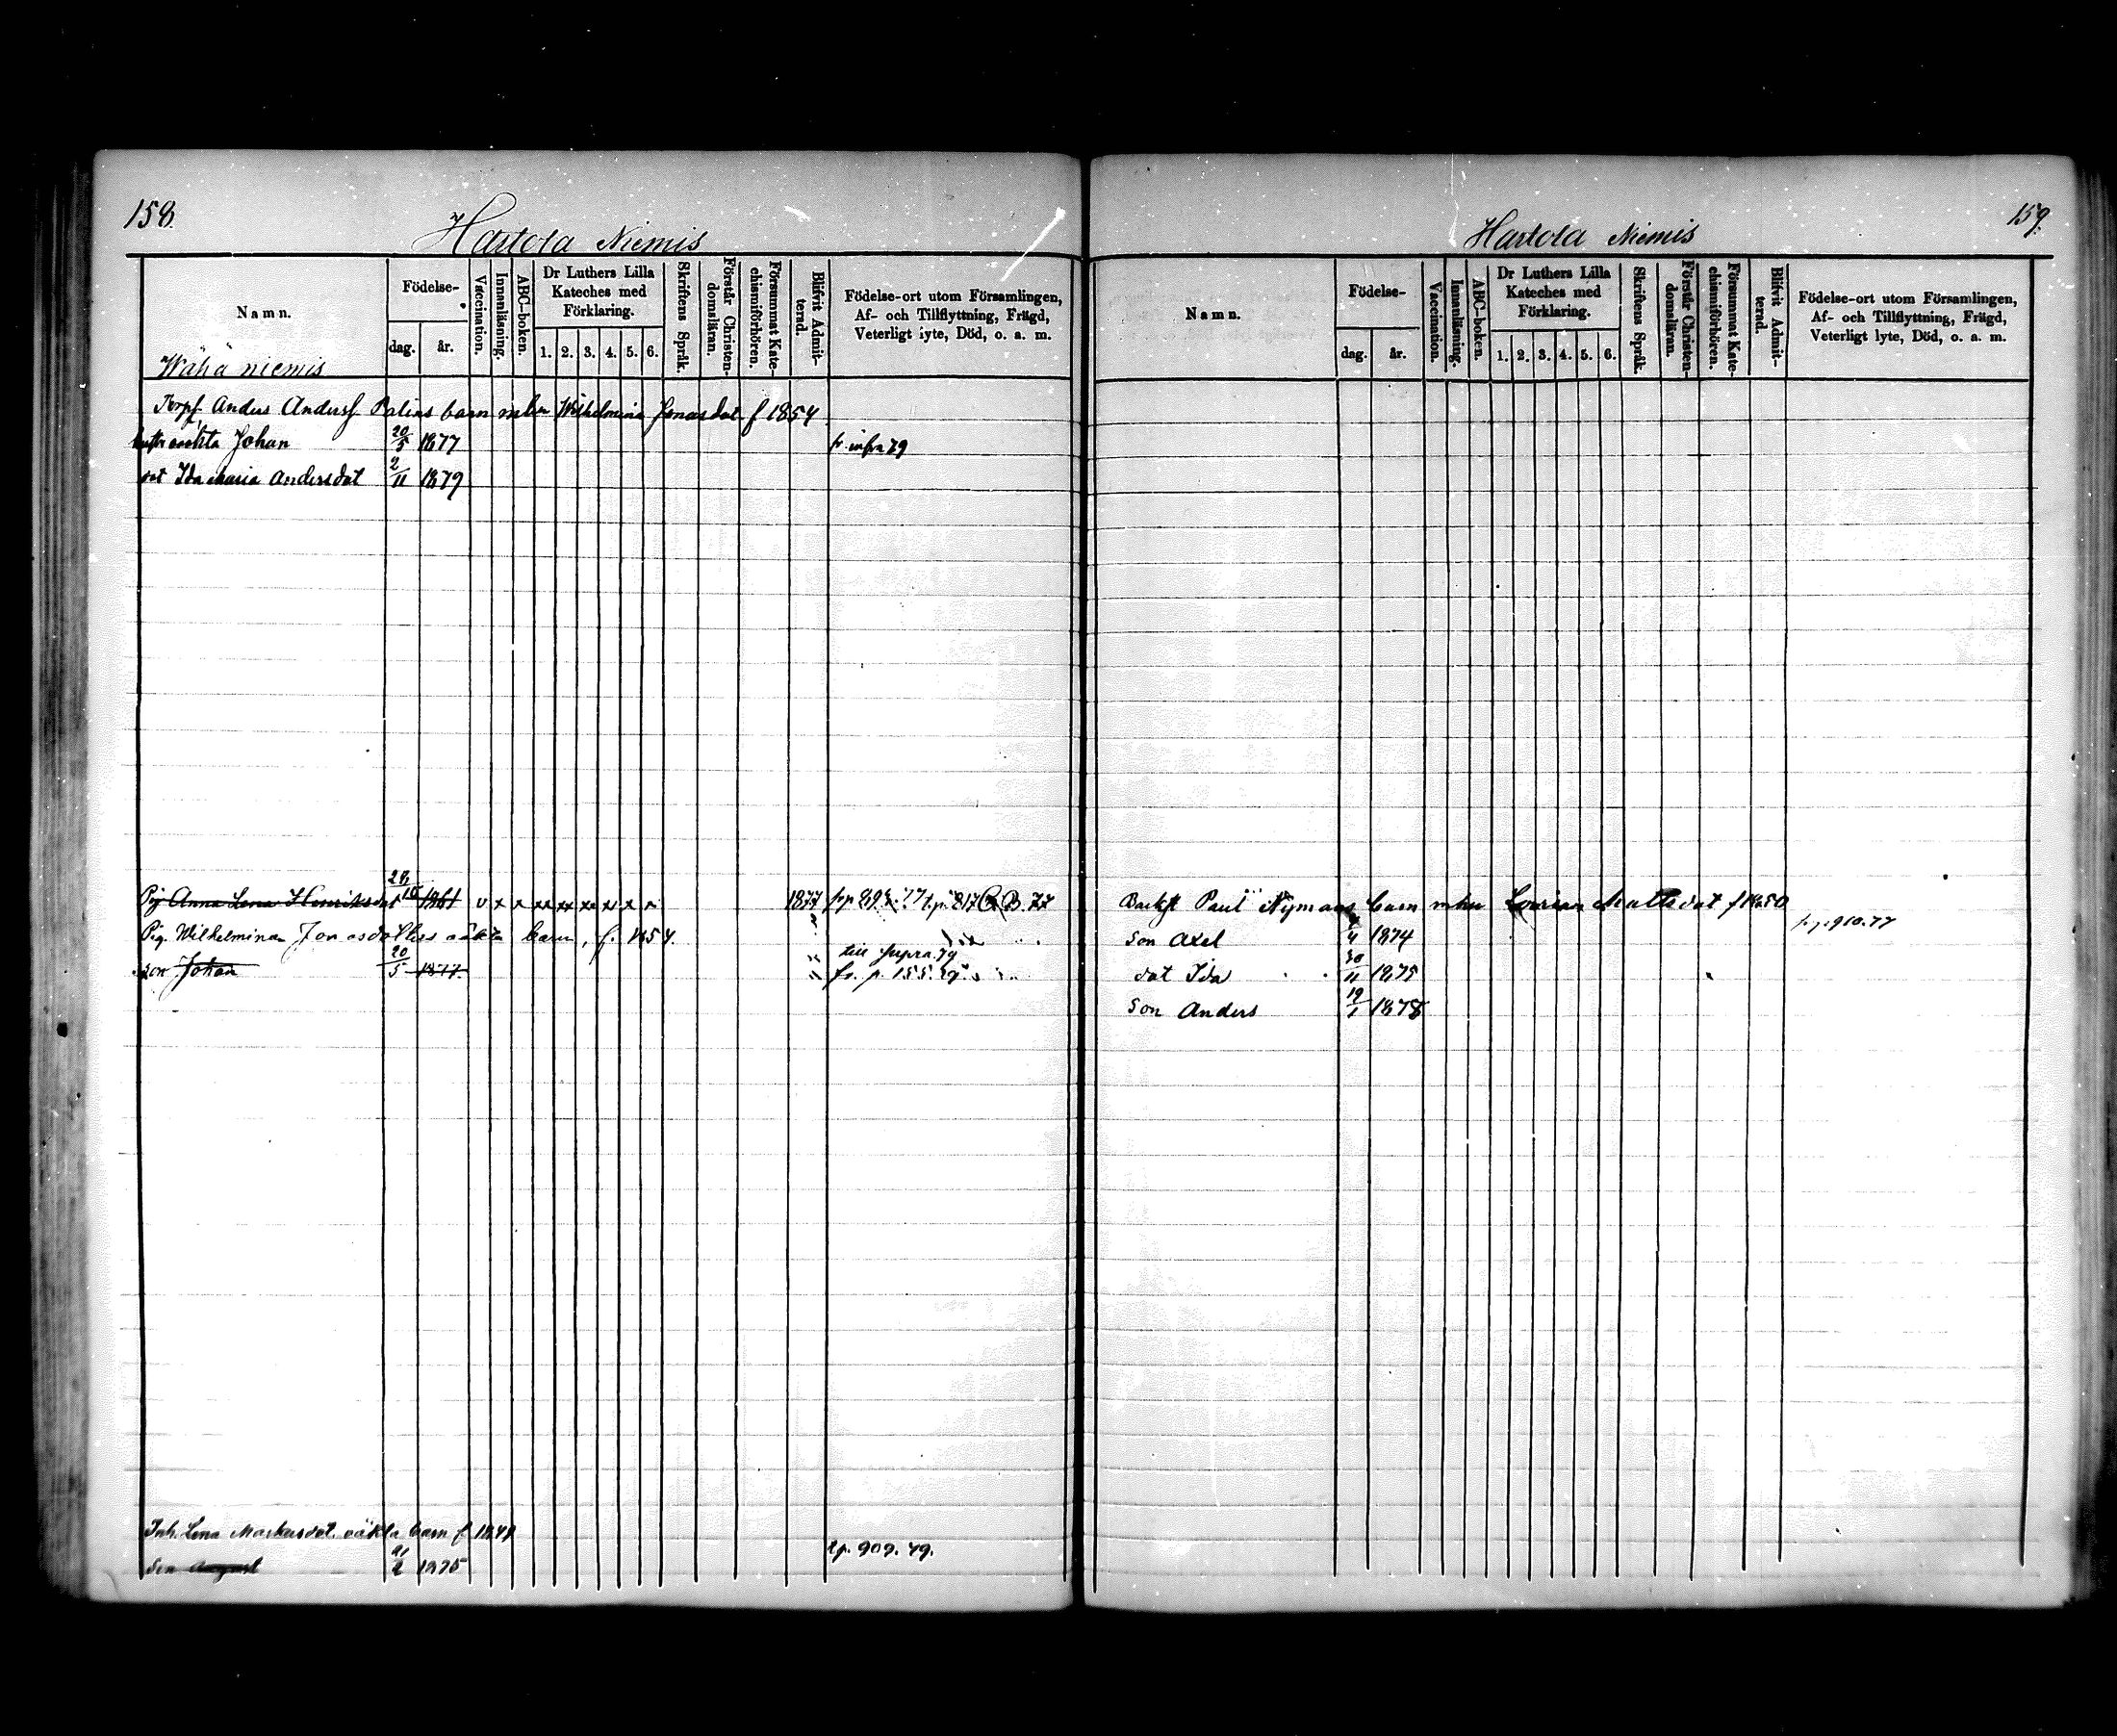 158.
Hartola Niemis
Namn.
Födelse-
dag.
år.
Vaccination.
Innanläsning.
ABC-boken.
Dr Luthers Lilla
Kateches med
Förklaring.
1. 2. 3. 4. 5. 6.
Skriftens Språk.
Förstår Christen-
domsläran.
Försummat Kate-
chismiförhören.
Blifvit Admit-
terad.
Födelse-ort utom Församlingen,
Af- och Tillflyttning, Frägd,
Veterligt lyte, Död, o. a. m.
Wähä niemis
Torpf Anders Andersf. barn Wilhelmina Jonasdot f 1854
oächta Johan 20/5 1877 fr. infra 79
dot Ida Maria Andersdot 2/11 1879
Pig Anna Lena Henriksdot 28/10 1861 v x x xx xx xx x x 1877 B. 77
Pig. Wilhelmina Jonasdotters oäkta barn, f. 1854.
till supra 79
son Johan 20/5 1877. fr. p. 155.
Inh. Lena Markusdot. oäkta barn f 1848
son August 2 1875 909. 79.
159.
Hartola Niemis
Namn.
Födelse-
dag.
år.
Vaccination.
Innanläsning.
ABC-boken.
Dr Luthers Lilla
Kateches med
Förklaring.
1. 2. 3. 4. 5. 6.
Skriftens Språk.
Förstår Christen-
domsläran.
Försummat Kate-
chismiförhören.
Blifvit Admit-
terad.
Födelse-ort utom Församlingen,
Af- och Tillflyttning, Frägd,
Veterligt lyte, Död, o. a. m.
Paul Nymans barn mhu Mattsdot f 1850
fr. p. 910. 77
Son Axel 1874
dot Ida 30/11 1875
Son Anders 19/1 1878